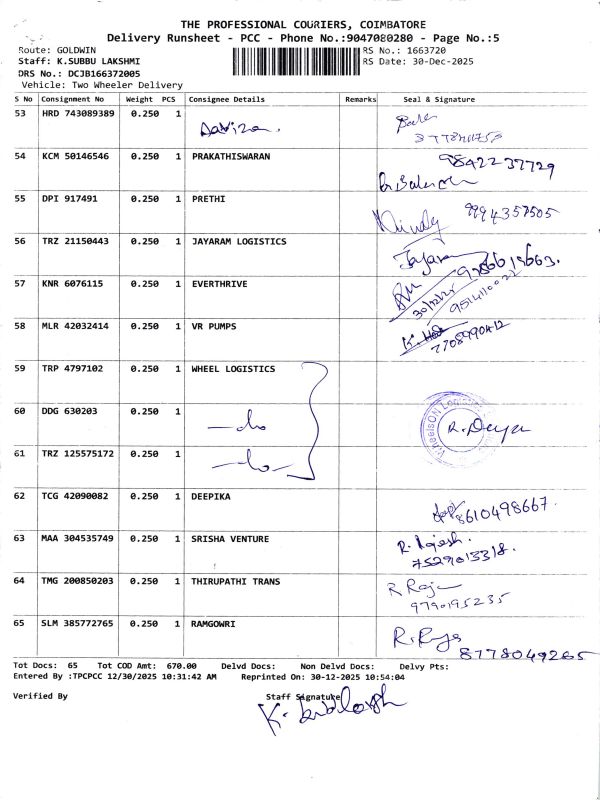 THE PROFESSIONAL COURIERS, COIMBATORE
Delivery Runsheet - PCC - Phone No.:9047080280 - Page No.:5
Route: GOLDWIN RS No.: 1663720
Staff: K.SUBBU LAKSHMI RS Date: 30-Dec-2025
DRS No.: DCJB166372005
Vehicle: Two Wheeler Delivery
S No Consignment No Weight PCS Consignee Details Remarks Seal & Signature
53 HRD 743089389 0.250 1
54 KCM 50146546 0.250 1 PRAKATHISWARAN 9842237729
55 DPI 917491 0.250 1 PRETHI 9994357505
56 TRZ 21150443 0.250 1 JAYARAM LOGISTICS Jayaram
57 KNR 6076115 0.250 1 EVERTHRIVE 30/12/25
58 MLR 42032414 0.250 1 VR PUMPS 7708990412
59 TRP 4797102 0.250 1 WHEEL LOGISTICS
60 DDG 630203 0.250 1 —do WheelsON Logistics
61 TRZ 125575172 0.250 1 —do—
62 TCG 42090082 0.250 1 DEEPIKA 8610498667.
63 MAA 304535749 0.250 1 SRISHA VENTURE R. Rajesh.
7529013318.
64 TMG 200850203 0.250 1 THIRUPATHI TRANS R Raju
9790195235
65 SLM 385772765 0.250 1 RAMGOWRI
8778049265
Tot Docs: 65 Tot COD Amt: 670.00 Delvd Docs: Non Delvd Docs: Delvy Pts:
Entered By :TPCPCC 12/30/2025 10:31:42 AM Reprinted On: 30-12-2025 10:54:04
Verified By Staff Signature